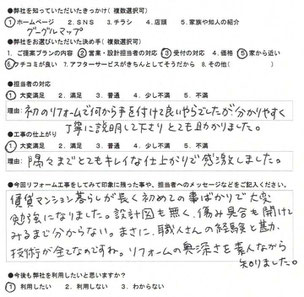 ●弊社を知っていただいたきっかけ（複数選択可）
①ホームページ 2. SNS 3. チラシ 4. 店頭 5. 家族や知人の紹介
グーグルマップ
●弊社をお選びいただいた決め手（複数選択可）
1. ご提案プランの内容 ②営業・設計担当者の対応 ③受付の対応 4. 価格 ⑤家から近い
⑥クチコミが良い 7. アフターサービスがきちんとしてそうだから 8. その他（ ）
●担当者の対応
①大変満足 2. 満足 3. 普通 4. 少し不満 5. 不満
理由：初めてのリフォームで何から手を付けて良いやらでしたが分かりやすく
丁寧に説明して下さりとても助かりました。
●工事の仕上がり
①大変満足 2. 満足 3. 普通 4. 少し不満 5. 不満
理由：隅々までとてもキレイな仕上がりで感激しました。
●今回リフォーム工事をしてみて印象に残った事や、担当者へのメッセージなどをご記入ください。
賃貸マンション暮らしが長く初めての事ばかりで大変
勉強になりました。設計図も無く、傷み具合も開けて
みるまで分からない。まさに、職人さんの経験と勘、
技術が全てなのですね。リフォームの奥深さを素人ながら
知りました。
●今後も弊社を利用したいと思いますか？
①利用したい 2. 利用しない 3. わからない